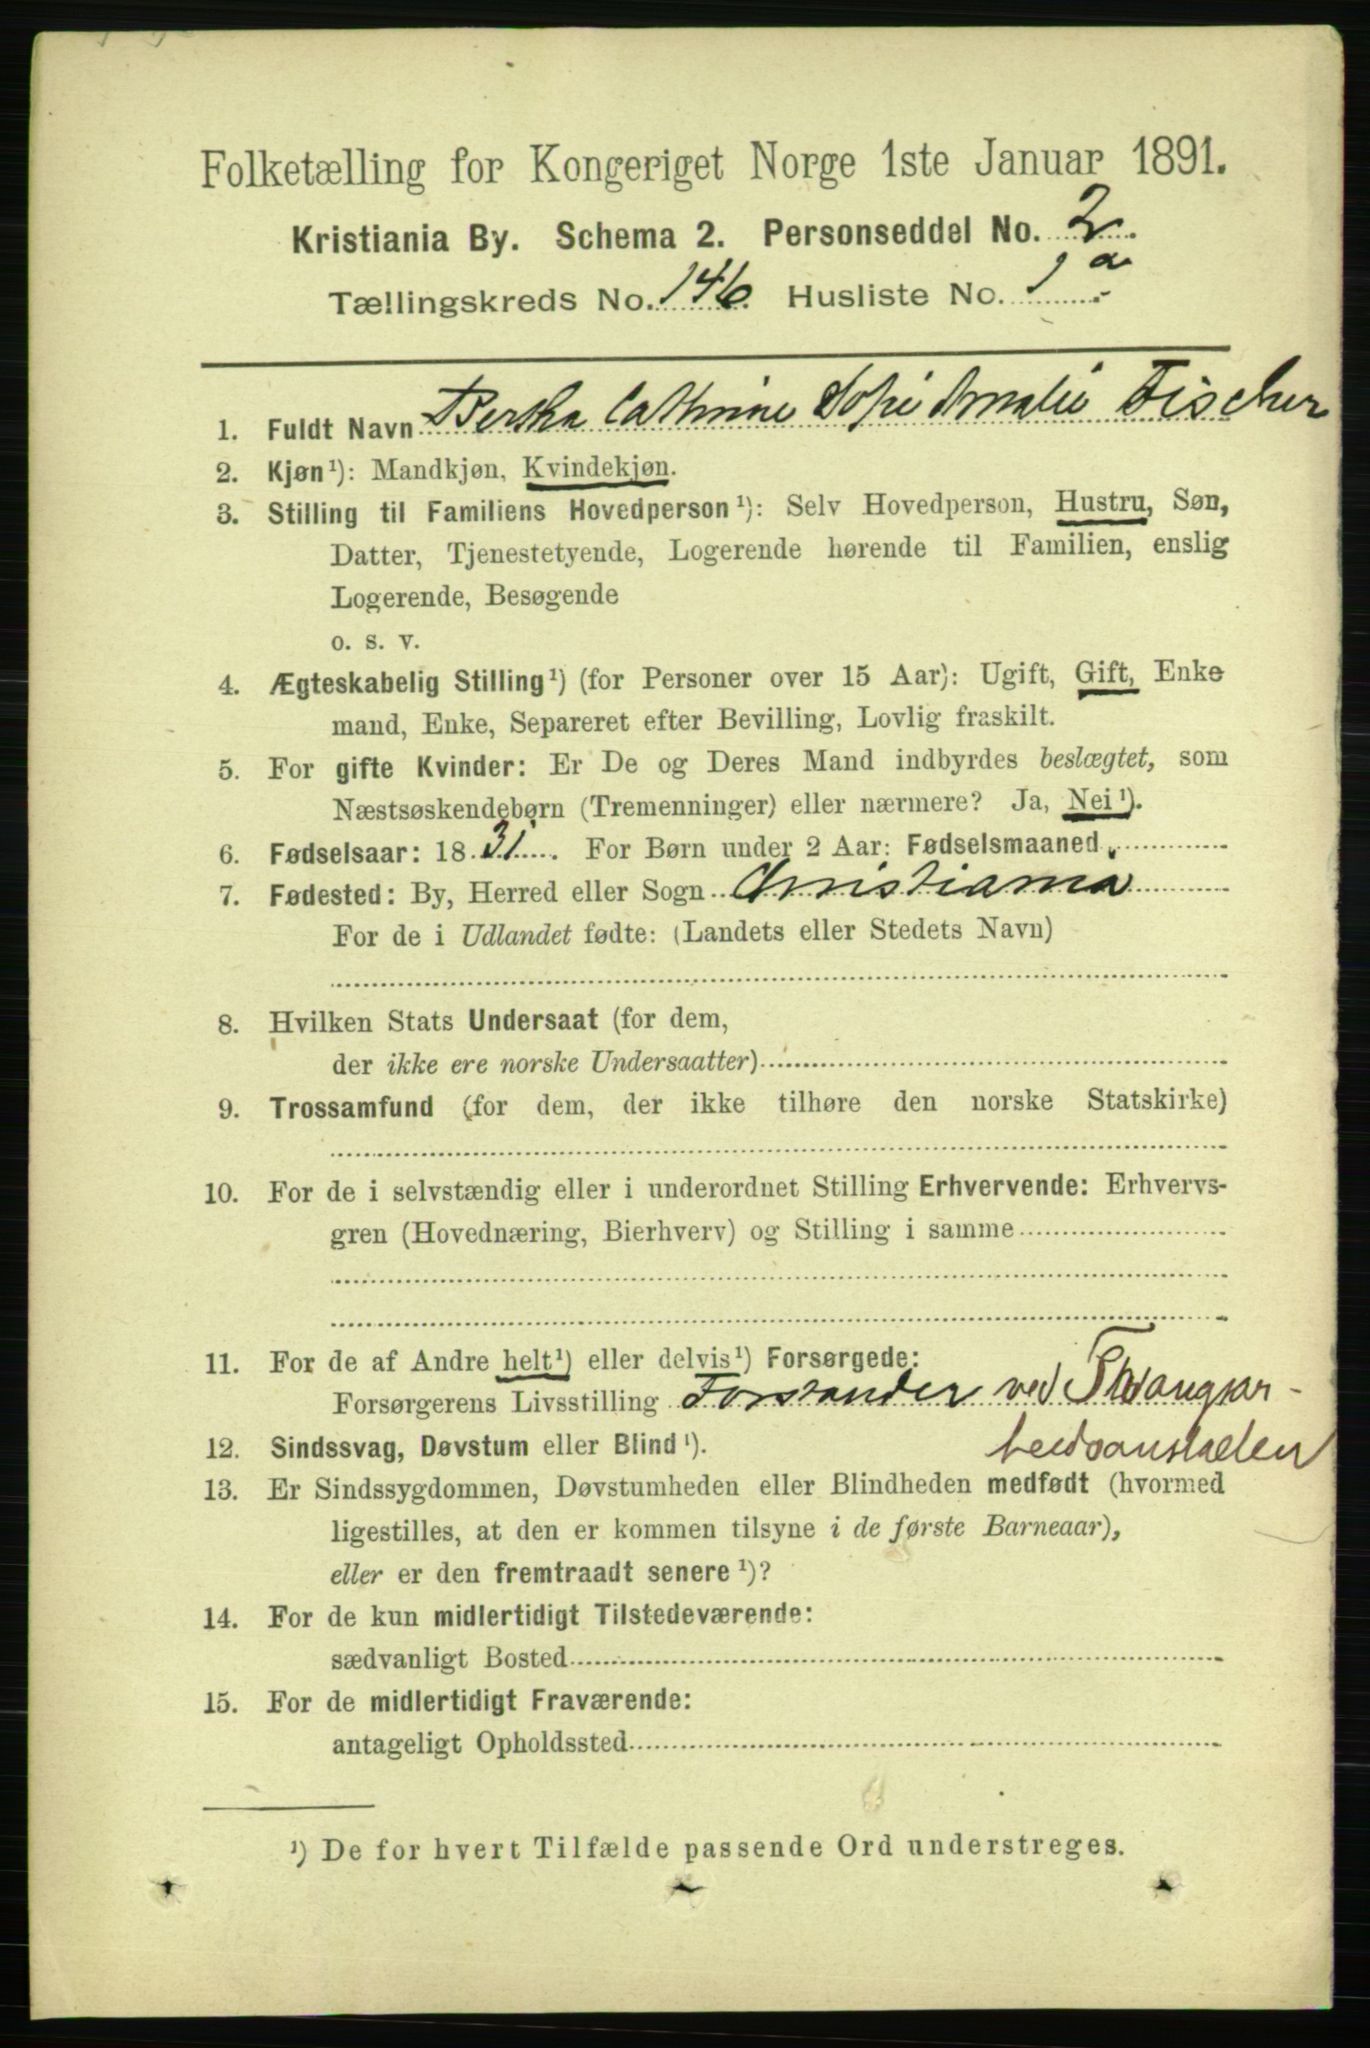 Folketælling for Kongeriget Norge 1ste Januar 1891.
Kristiania By. Schema 2. Personseddel No. 2
Tællingskreds No. 146 Husliste No. 1 a
1. Fuldt Navn Bertha Cathrine Sofie Amalie Fischer
2. Kjøn¹): Mandkjøn, Kvindekjøn.
3. Stilling til Familiens Hovedperson¹): Selv Hovedperson, Hustru, Søn,
Datter, Tjenestetyende, Logerende hørende til Familien, enslig
Logerende, Besøgende
o. s. v.
4. Ægteskabelig Stilling¹) (for Personer over 15 Aar): Ugift, Gift, Enke
mand, Enke, Separeret efter Bevilling, Lovlig fraskilt.
5. For gifte Kvinder: Er De og Deres Mand indbyrdes beslægtet, som
Næstsøskendebørn (Tremenninger) eller nærmere? Ja, Nei¹).
6. Fødselsaar: 1831. For Børn under 2 Aar: Fødselsmaaned
7. Fødested: By, Herred eller Sogn Christiania
For de i Udlandet fødte: (Landets eller Stedets Navn)
8. Hvilken Stats Undersaat (for dem,
der ikke ere norske Undersaatter)
9. Trossamfund (for dem, der ikke tilhøre den norske Statskirke)
10. For de i selvstændig eller i underordnet Stilling Erhvervende: Erhvervs-
gren (Hovednæring, Bierhverv) og Stilling i samme
11. For de af Andre helt¹) eller delvis¹) Forsørgede:
Forsørgerens Livsstilling Forstander ved Tvangsar-
beidsanstalten
12. Sindssvag, Døvstum eller Blind¹).
13. Er Sindssygdommen, Døvstumheden eller Blindheden medfødt (hvormed
ligestilles, at den er kommen tilsyne i de første Barneaar),
eller er den fremtraadt senere¹)?
14. For de kun midlertidigt Tilstedeværende:
sædvanligt Bosted
15. For de midlertidigt Fraværende:
antageligt Opholdssted
¹) De for hvert Tilfælde passende Ord understreges.